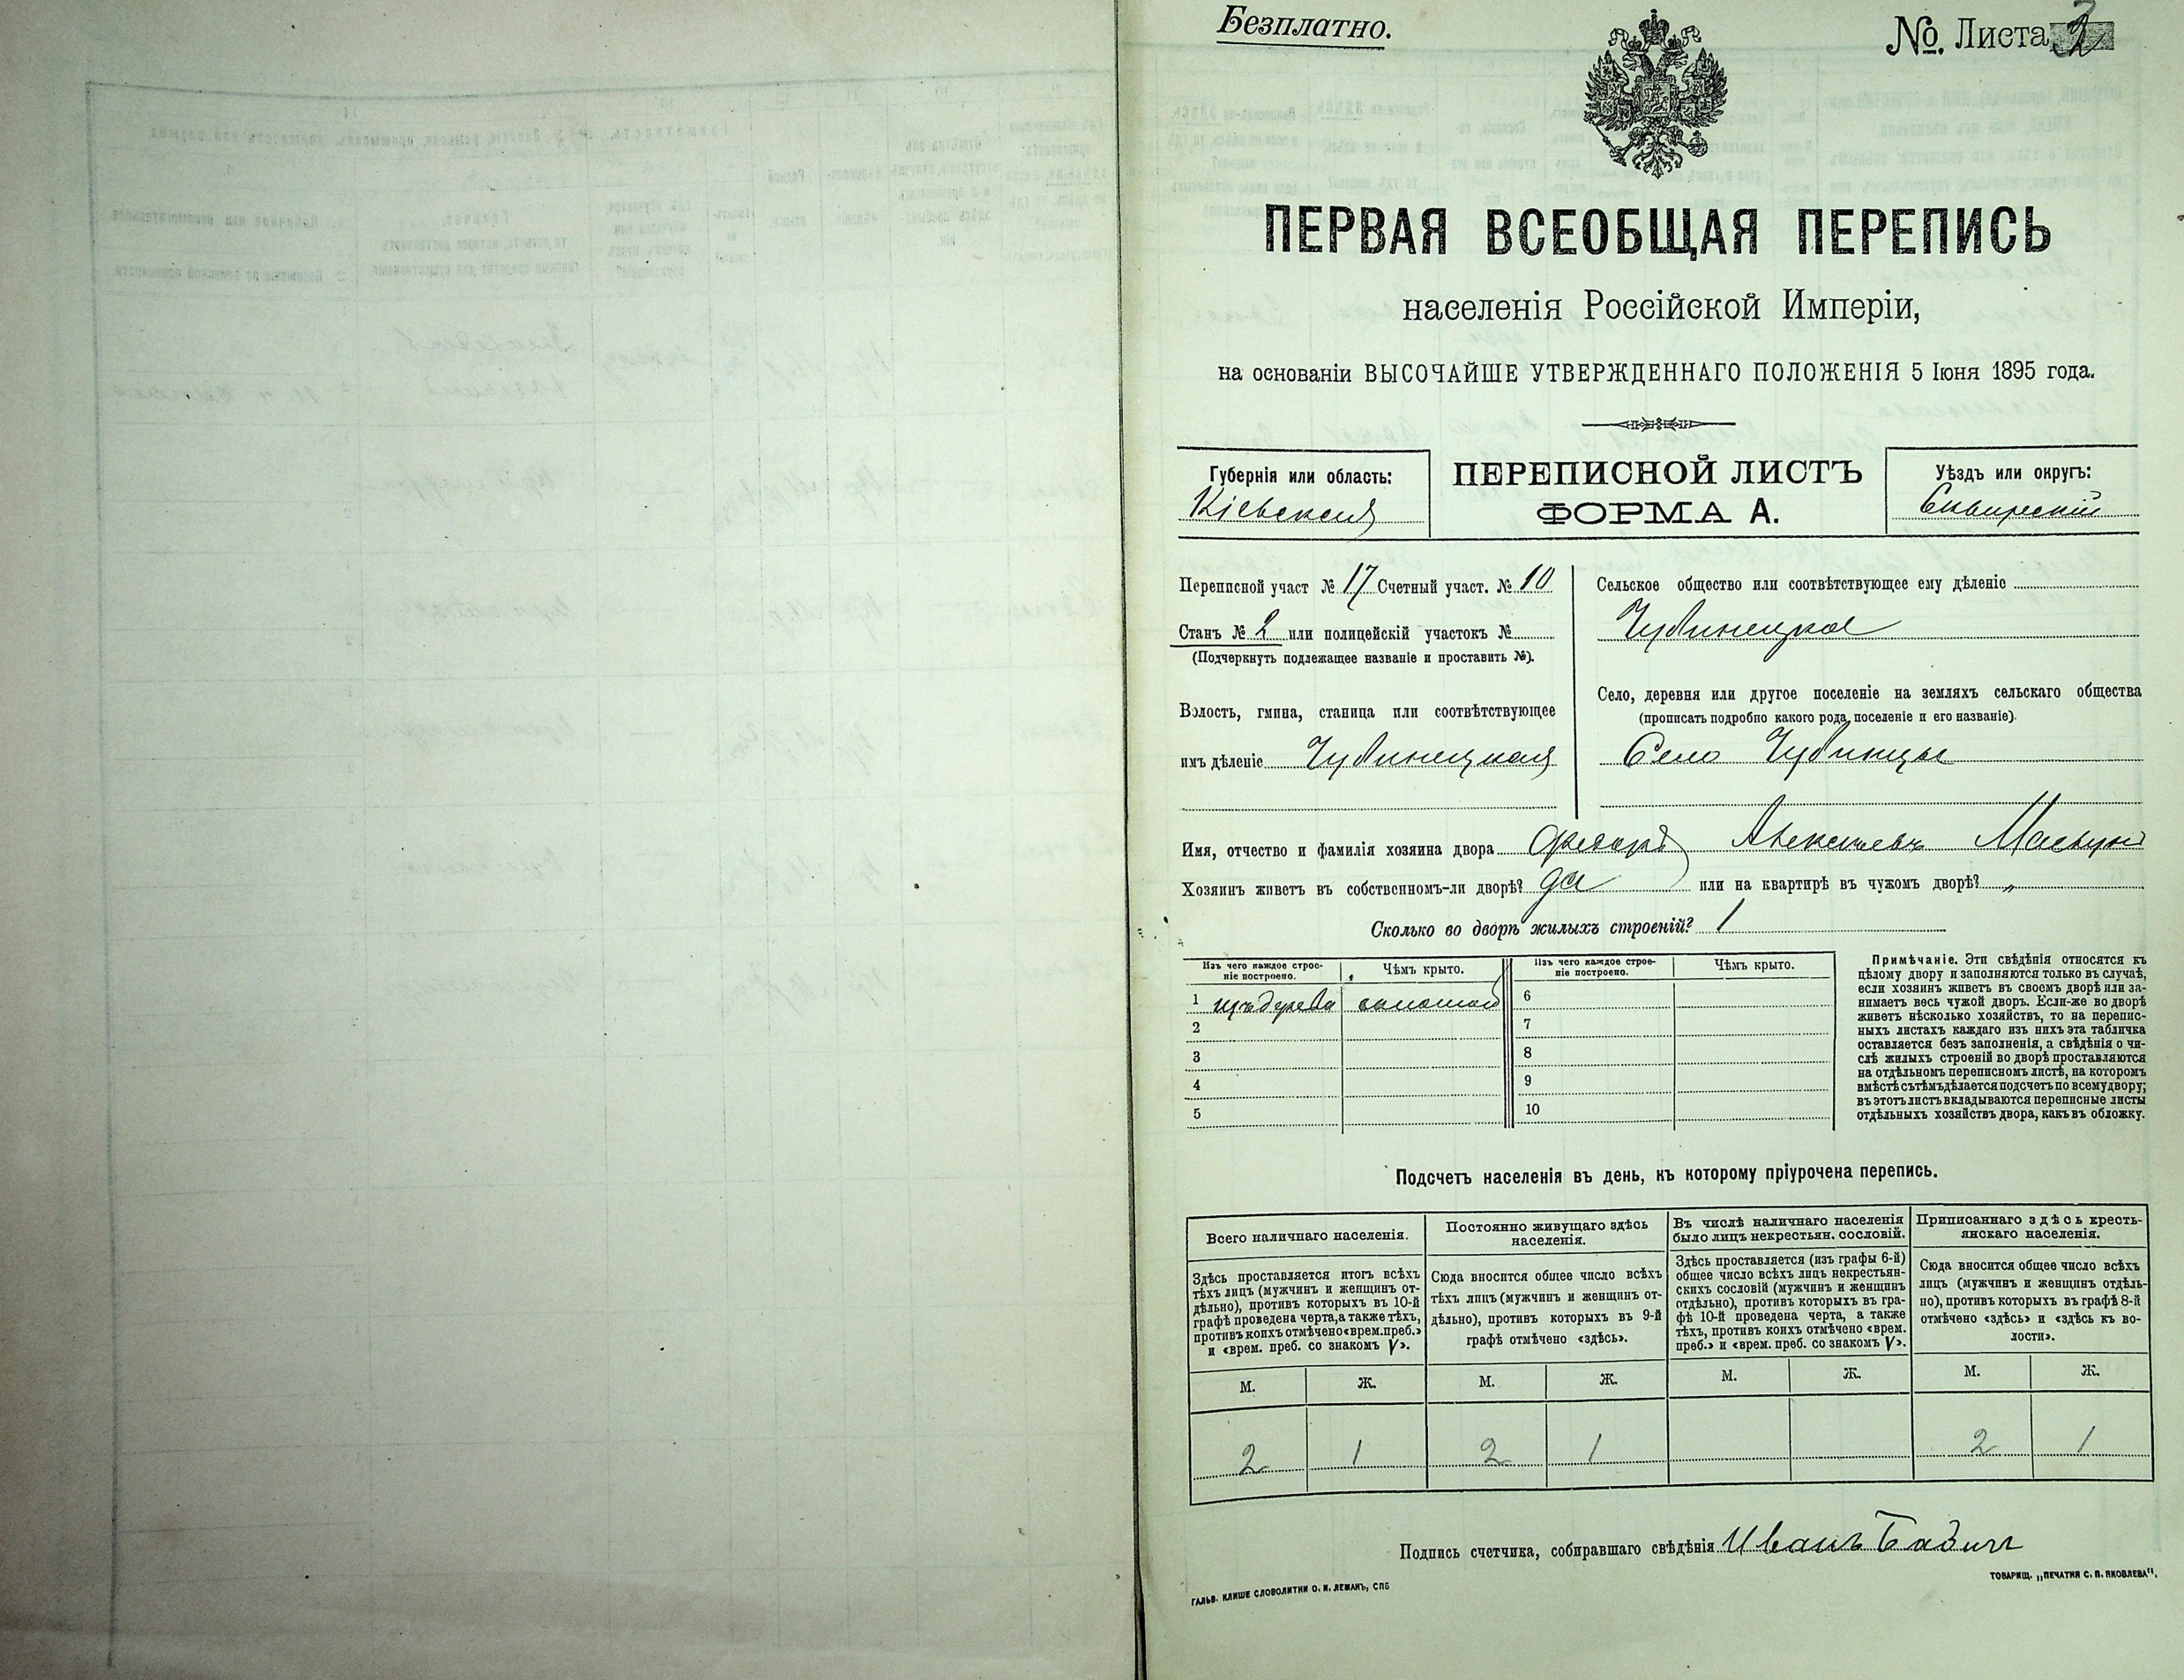 Безплатно.
№. Листа
ПЕРВАЯ ВСЕОБЩАЯ ПЕРЕПИСЬ
населенія Россійской Имперіи,
на основаніи ВЫСОЧАЙШЕ УТВЕРЖДЕННАГО ПОЛОЖЕНІЯ 5 Іюня 1895 года.
Губернія или область:
Кіевская
ПЕРЕПИСНОЙ ЛИСТЪ
ФОРМА А.
Уѣздъ или округъ:
Сквирскій
Переписной участ № 17 Счетный участ. № 10
Станъ № 2 или полицейскій участокъ №
(Подчеркнуть подлежащее названіе и проставить №).
Волость, гмина, станица или соотвѣтствующее
имъ дѣленіе Чубинецкая
Сельское общество или соотвѣтствующее ему дѣленіе
Чубинецкое
Село, деревня или другое поселеніе на земляхъ сельскаго общества
(прописать подробно какого рода поселеніе и его названіе).
Село Чубинцы
Имя, отчество и фамилія хозяина двора
Хозяинъ живетъ въ собственномъ-ли дворѣ? да или на квартирѣ въ чужомъ дворѣ? „
Сколько во дворѣ жилыхъ строеній? 1
Изъ чего каждое строе-
ніе построено.
Чѣмъ крыто.
Изъ чего каждое строе-
ніе построено.
Чѣмъ крыто.
1 изъ дерева соломой
2
3
4
5
6
7
8
9
10
Примѣчаніе. Эти свѣдѣнія относятся къ
цѣлому двору и заполняются только въ случаѣ,
если хозяинъ живетъ въ своемъ дворѣ или за-
нимаетъ весь чужой дворъ. Если-же во дворѣ
живетъ нѣсколько хозяйствъ, то на перепис-
ныхъ листахъ каждаго изъ нихъ эта табличка
оставляется безъ заполненія, а свѣдѣнія о чи-
слѣ жилыхъ строеній во дворѣ проставляются
на отдѣльномъ переписномъ листѣ, на которомъ
вмѣстѣ съ тѣмъ дѣлается подсчетъ по всему двору;
въ этотъ листъ вкладываются переписные листы
отдѣльныхъ хозяйствъ двора, какъ въ обложку.
Подсчетъ населенія въ день, къ которому пріурочена перепись.
Всего наличнаго населенія.
Здѣсь проставляется итогъ всѣхъ
тѣхъ лицъ (мужчинъ и женщинъ от-
дѣльно), противъ которыхъ въ 10-й
графѣ проведена черта, а также тѣхъ,
противъ коихъ отмѣчено «врем. преб.»
и «врем. преб. со знакомъ V».
Постоянно живущаго здѣсь
населенія.
Сюда вносится общее число всѣхъ
тѣхъ лицъ (мужчинъ и женщинъ от-
дѣльно), противъ которыхъ въ 9-й
графѣ отмѣчено «здѣсь».
Въ числѣ наличнаго населенія
было лицъ некрестьян. сословій.
Здѣсь проставляется (изъ графы 6-й)
общее число всѣхъ лицъ некрестьян-
скихъ сословій (мужчинъ и женщинъ
отдѣльно), противъ которыхъ въ гра-
фѣ 10-й проведена черта, а также
тѣхъ, противъ коихъ отмѣчено «врем.
преб.» и «врем. преб. со знакомъ V».
Приписаннаго здѣсь кресть-
янскаго населенія.
Сюда вносится общее число всѣхъ
лицъ (мужчинъ и женщинъ отдѣль-
но), противъ которыхъ въ графѣ 8-й
отмѣчено «здѣсь» и «здѣсь къ во-
лости».
М. Ж. М. Ж. М. Ж. М. Ж.
2 1 2 1 2 1
Подпись счетчика, собиравшаго свѣдѣнія Иванъ
ГАЛЬВ. КЛИШЕ СЛОВОЛИТНИ О. И. ЛЕМАНЪ, СПБ
ТОВАРИЩ. „ПЕЧАТНЯ С. П. ЯКОВЛЕВА".